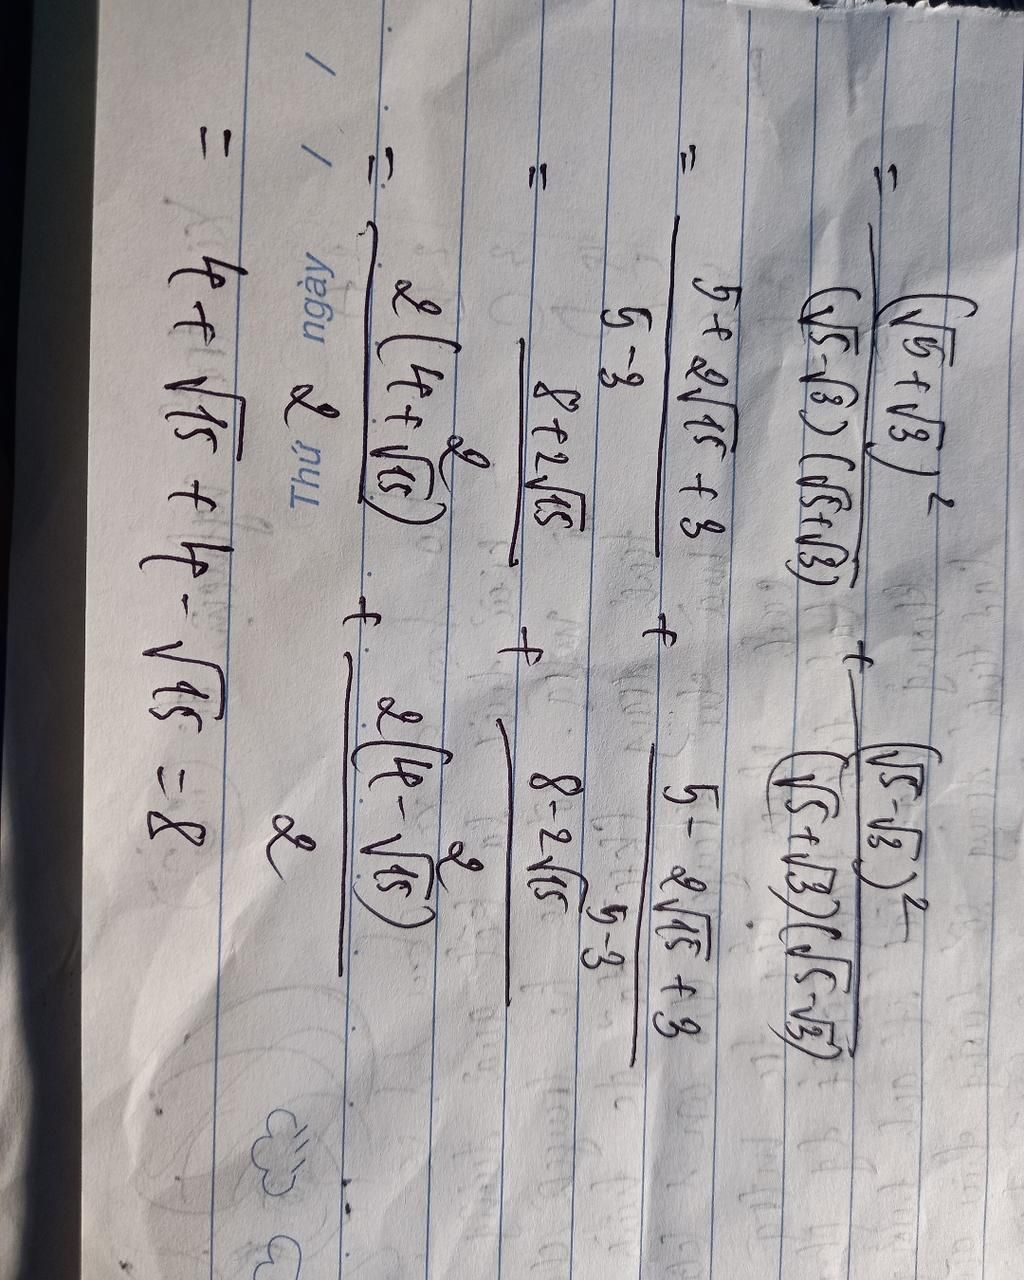 = (√5+√3)² / (√5-√3)(√5+√3) + (√5-√3)² / (√5+√3)(√5-√3)
= 5+2√15+3 / 5-3 + 5-2√15+3 / 5-3
= 8+2√15 / 2 + 8-2√15 / 2
= 2(4+√15) / 2 + 2(4-√15) / 2
Thứ ngày / /
= 4+√15+4-√15=8